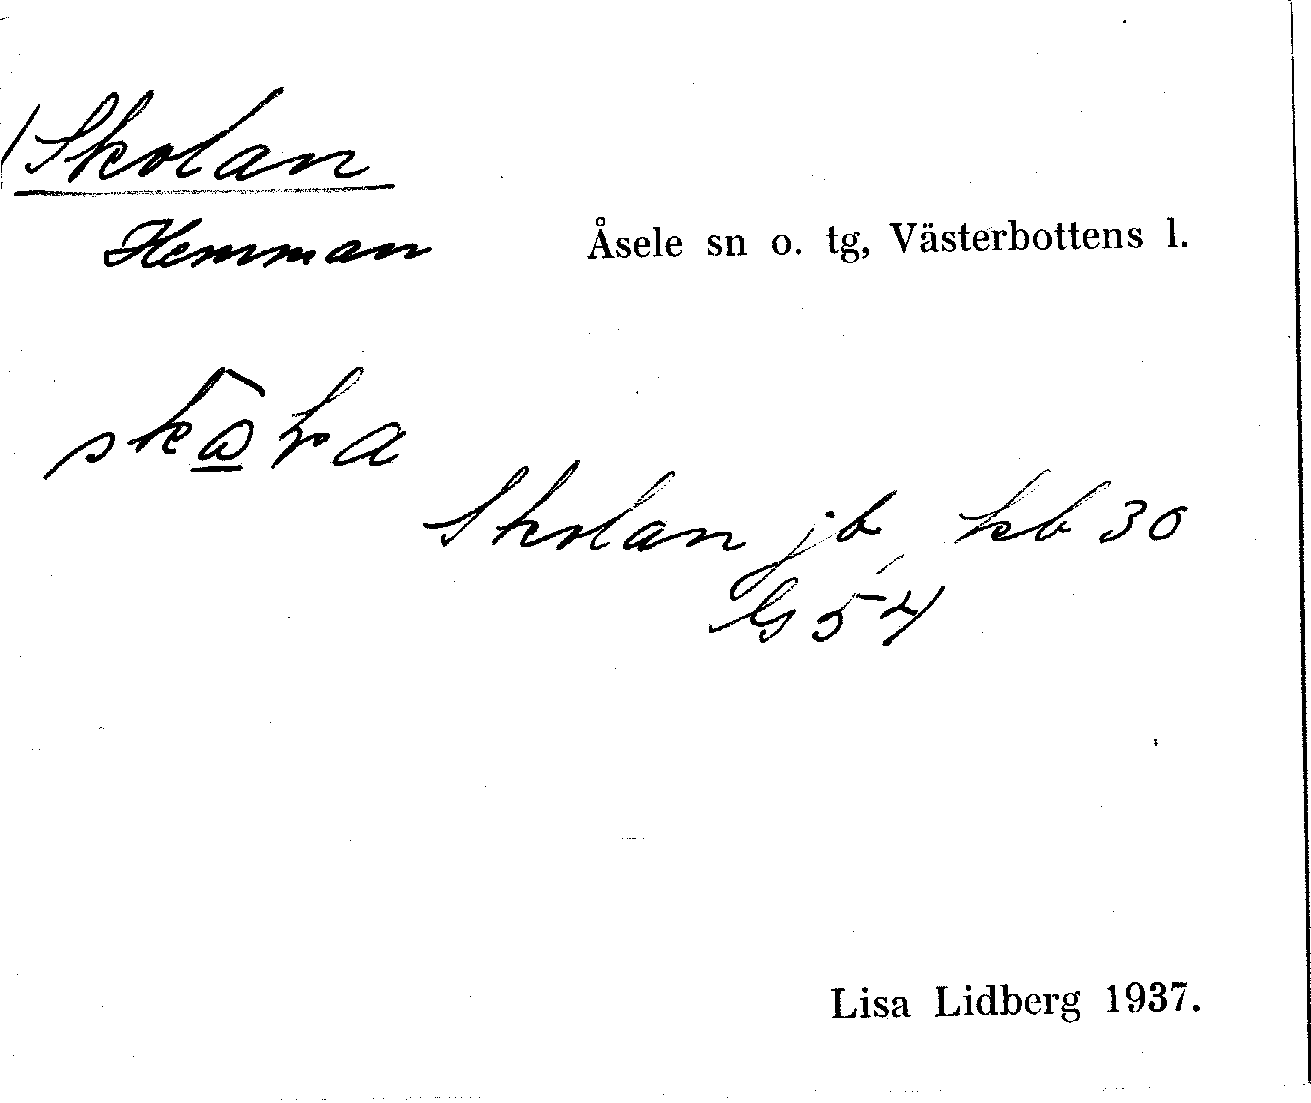 Skolan
Hemman
Åsele sn o. tg, Västerbottens l.
Skolan jb, kb 30
G 54
Lisa Lidberg 1937.